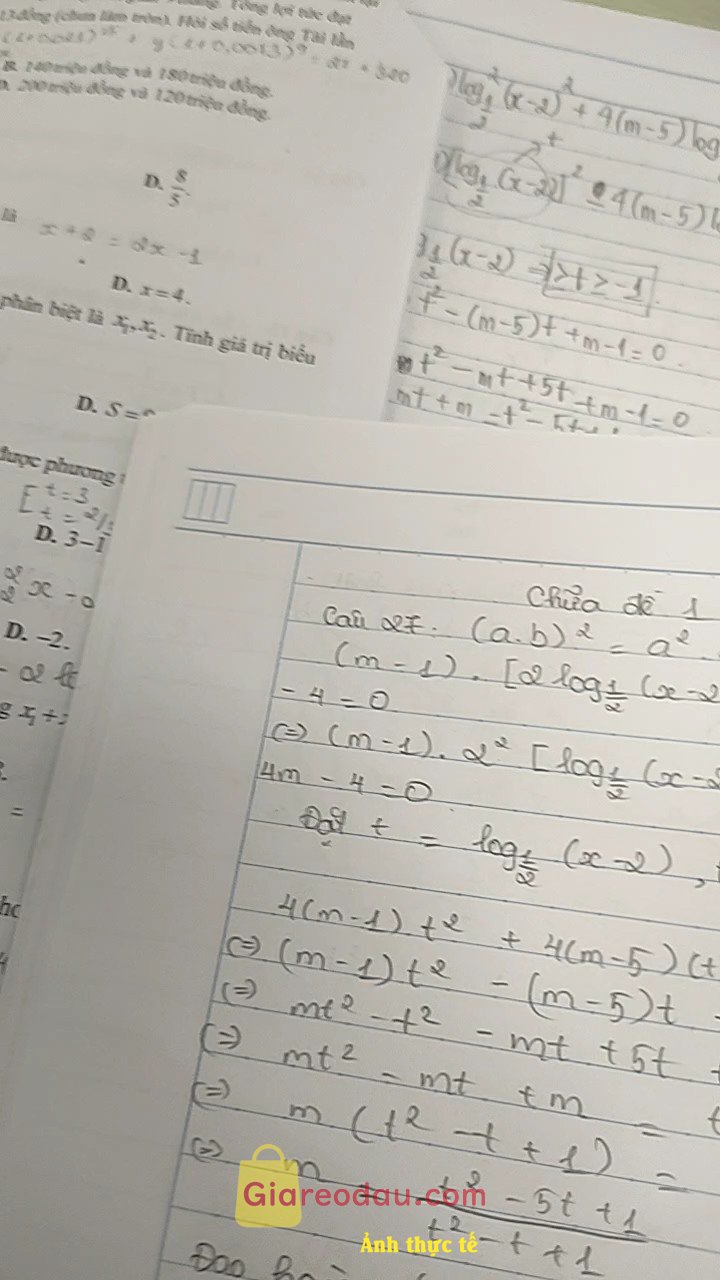 Tổng lợi tức đạt
đồng (chưa làm tròn). Hỏi số tiền ông Tài lần
B. 140 triệu đồng và 180 triệu đồng.
D. 200 triệu đồng và 120 triệu đồng.
D. 8/5.
là x + 2 = 2x - 1
D. x = 4.
phân biệt là x₁, x₂. Tính giá trị biểu
D. S =
được phương
[ t = 3
t = 2/
D. 3-1
D. -2.
log²_{1/2} (x-2)² + 4(m-5) log
[log_{1/2} (x-2)]² 4(m-5)
_{1/2} (x-2) => 1 > t ≥ -1
t² - (m-5)t + m - 1 = 0
mt² - mt + 5t + m - 1 = 0
mt + m = t² - 5t
Chữa đề 1
Câu 27: (a.b)² = a²
(m-1). [2 log_{1/2} (x-2
- 4 = 0
(=) (m-1). 2² [log_{1/2} (x-2
4m - 4 = 0
Đặt t = log_{1/2} (x-2),
4(m-1) t² + 4(m-5) (t
(=) (m-1) t² - (m-5) t
(=) mt² - t² - mt + 5t +
(=) mt² - mt + m = t
(=) m (t² - t + 1) =
(=) m = t² - 5t + 1 / t² - t + 1
Giareodau.com
Ảnh thực tế